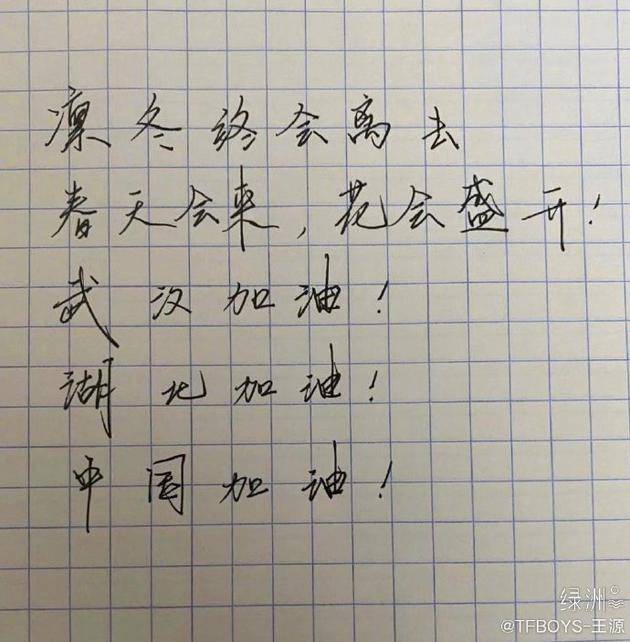 凛冬终会离去
春天会来，花会盛开！
武汉加油！
湖北加油！
中国加油！
绿洲
@TFBOYS-王源